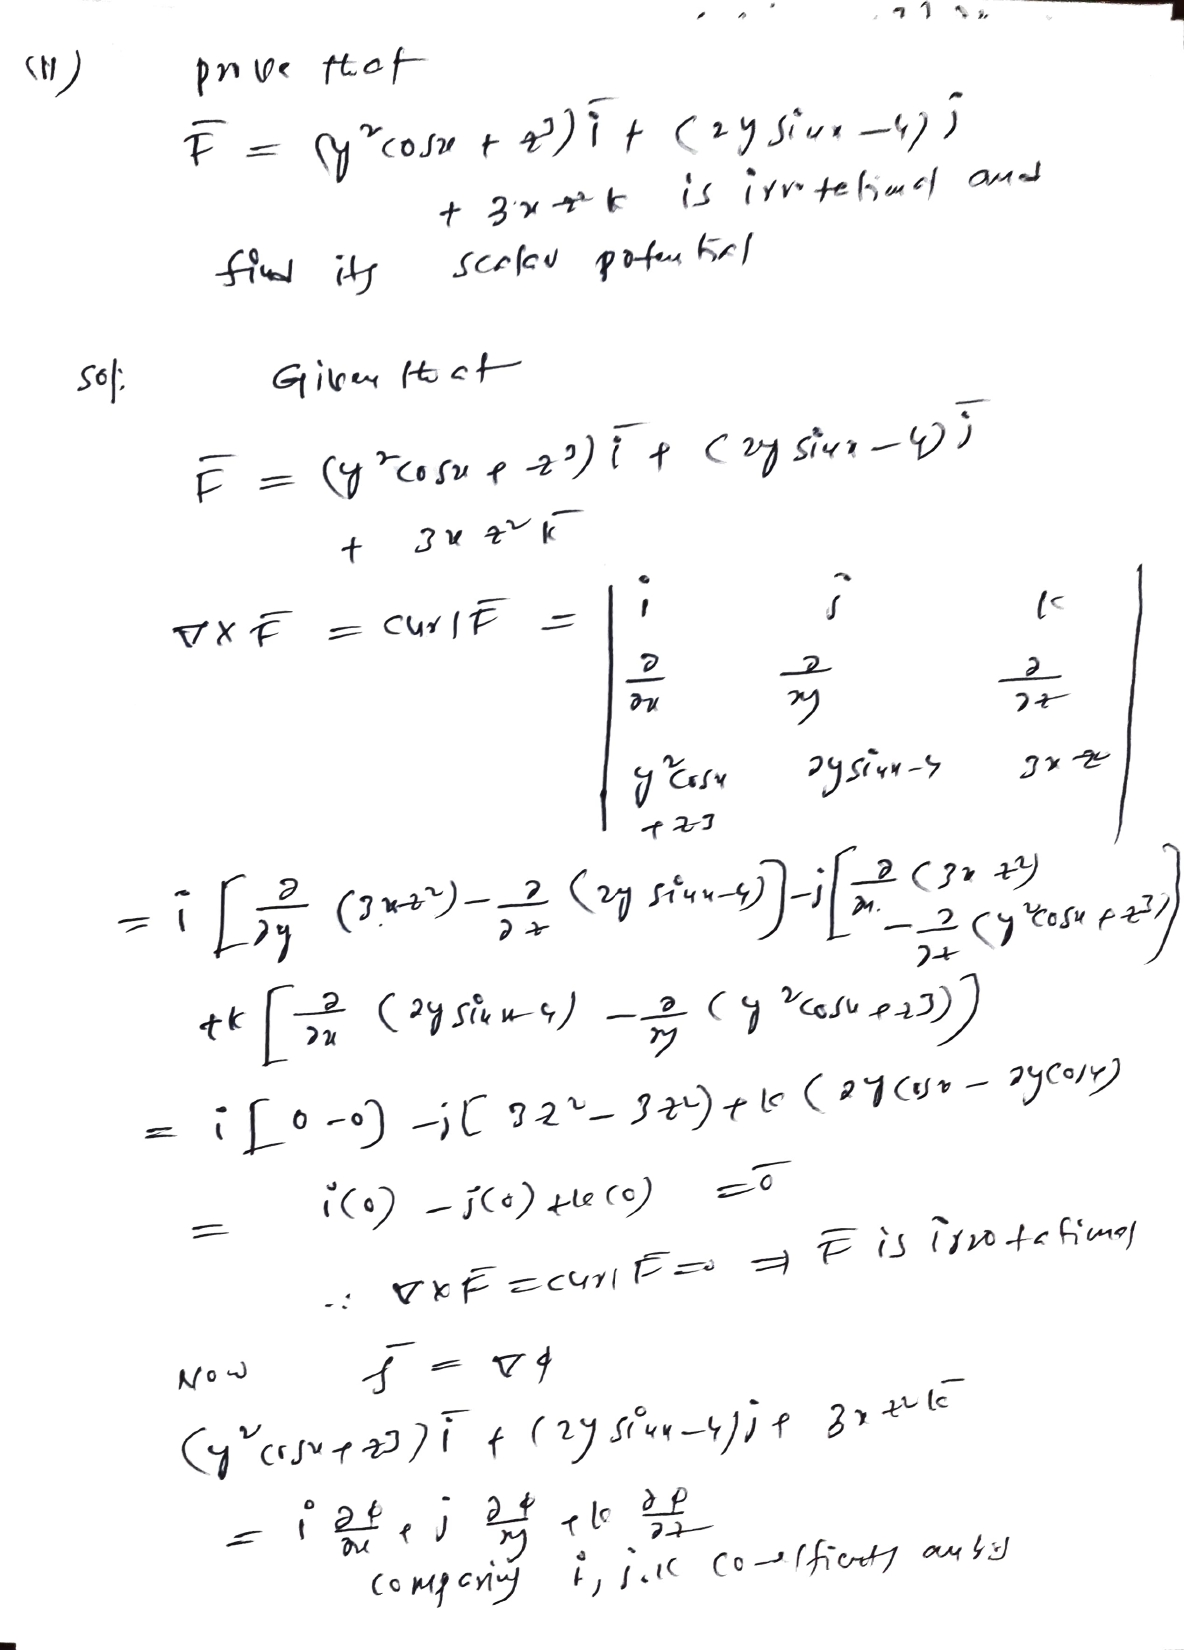 (11) prove that
F̄ = (y²cosx + z³) ī + (2y sinx - 4) j̄
+ 3xz² k is irrotational and
find its scalar potential
Sol: Given that
F̄ = (y²cosx + z³) ī + (2y sinx - 4) j̄
+ 3xz² k̄
∇×F̄ = curl F̄ = | i j k |
∂/∂x ∂/∂y ∂/∂z
y²cosx 2ysinx-4 3xz²
+z3
= ī [∂/∂y (3xz²) - ∂/∂z (2y sinx-4)] - j [∂/∂x (3xz²)
- ∂/∂z (y²cosx + z³)]
+k [∂/∂x (2y sinx-4) - ∂/∂y (y²cosx+z3))]
= i [0-0] - j [3z² - 3z²) + k (2ycosx - 2ycosx)
= i(0) - j(0) + k(0) = 0̄
∴ ∇×F̄ = curl F̄ = 0 ⇒ F̄ is irrotational
Now f̄ = ∇φ
(y²cosx+z3) ī + (2y sinx-4) j + 3xz² k̄
= i ∂φ/∂x + j ∂φ/∂y + k ∂φ/∂z
comparing i, j, k co-efficients